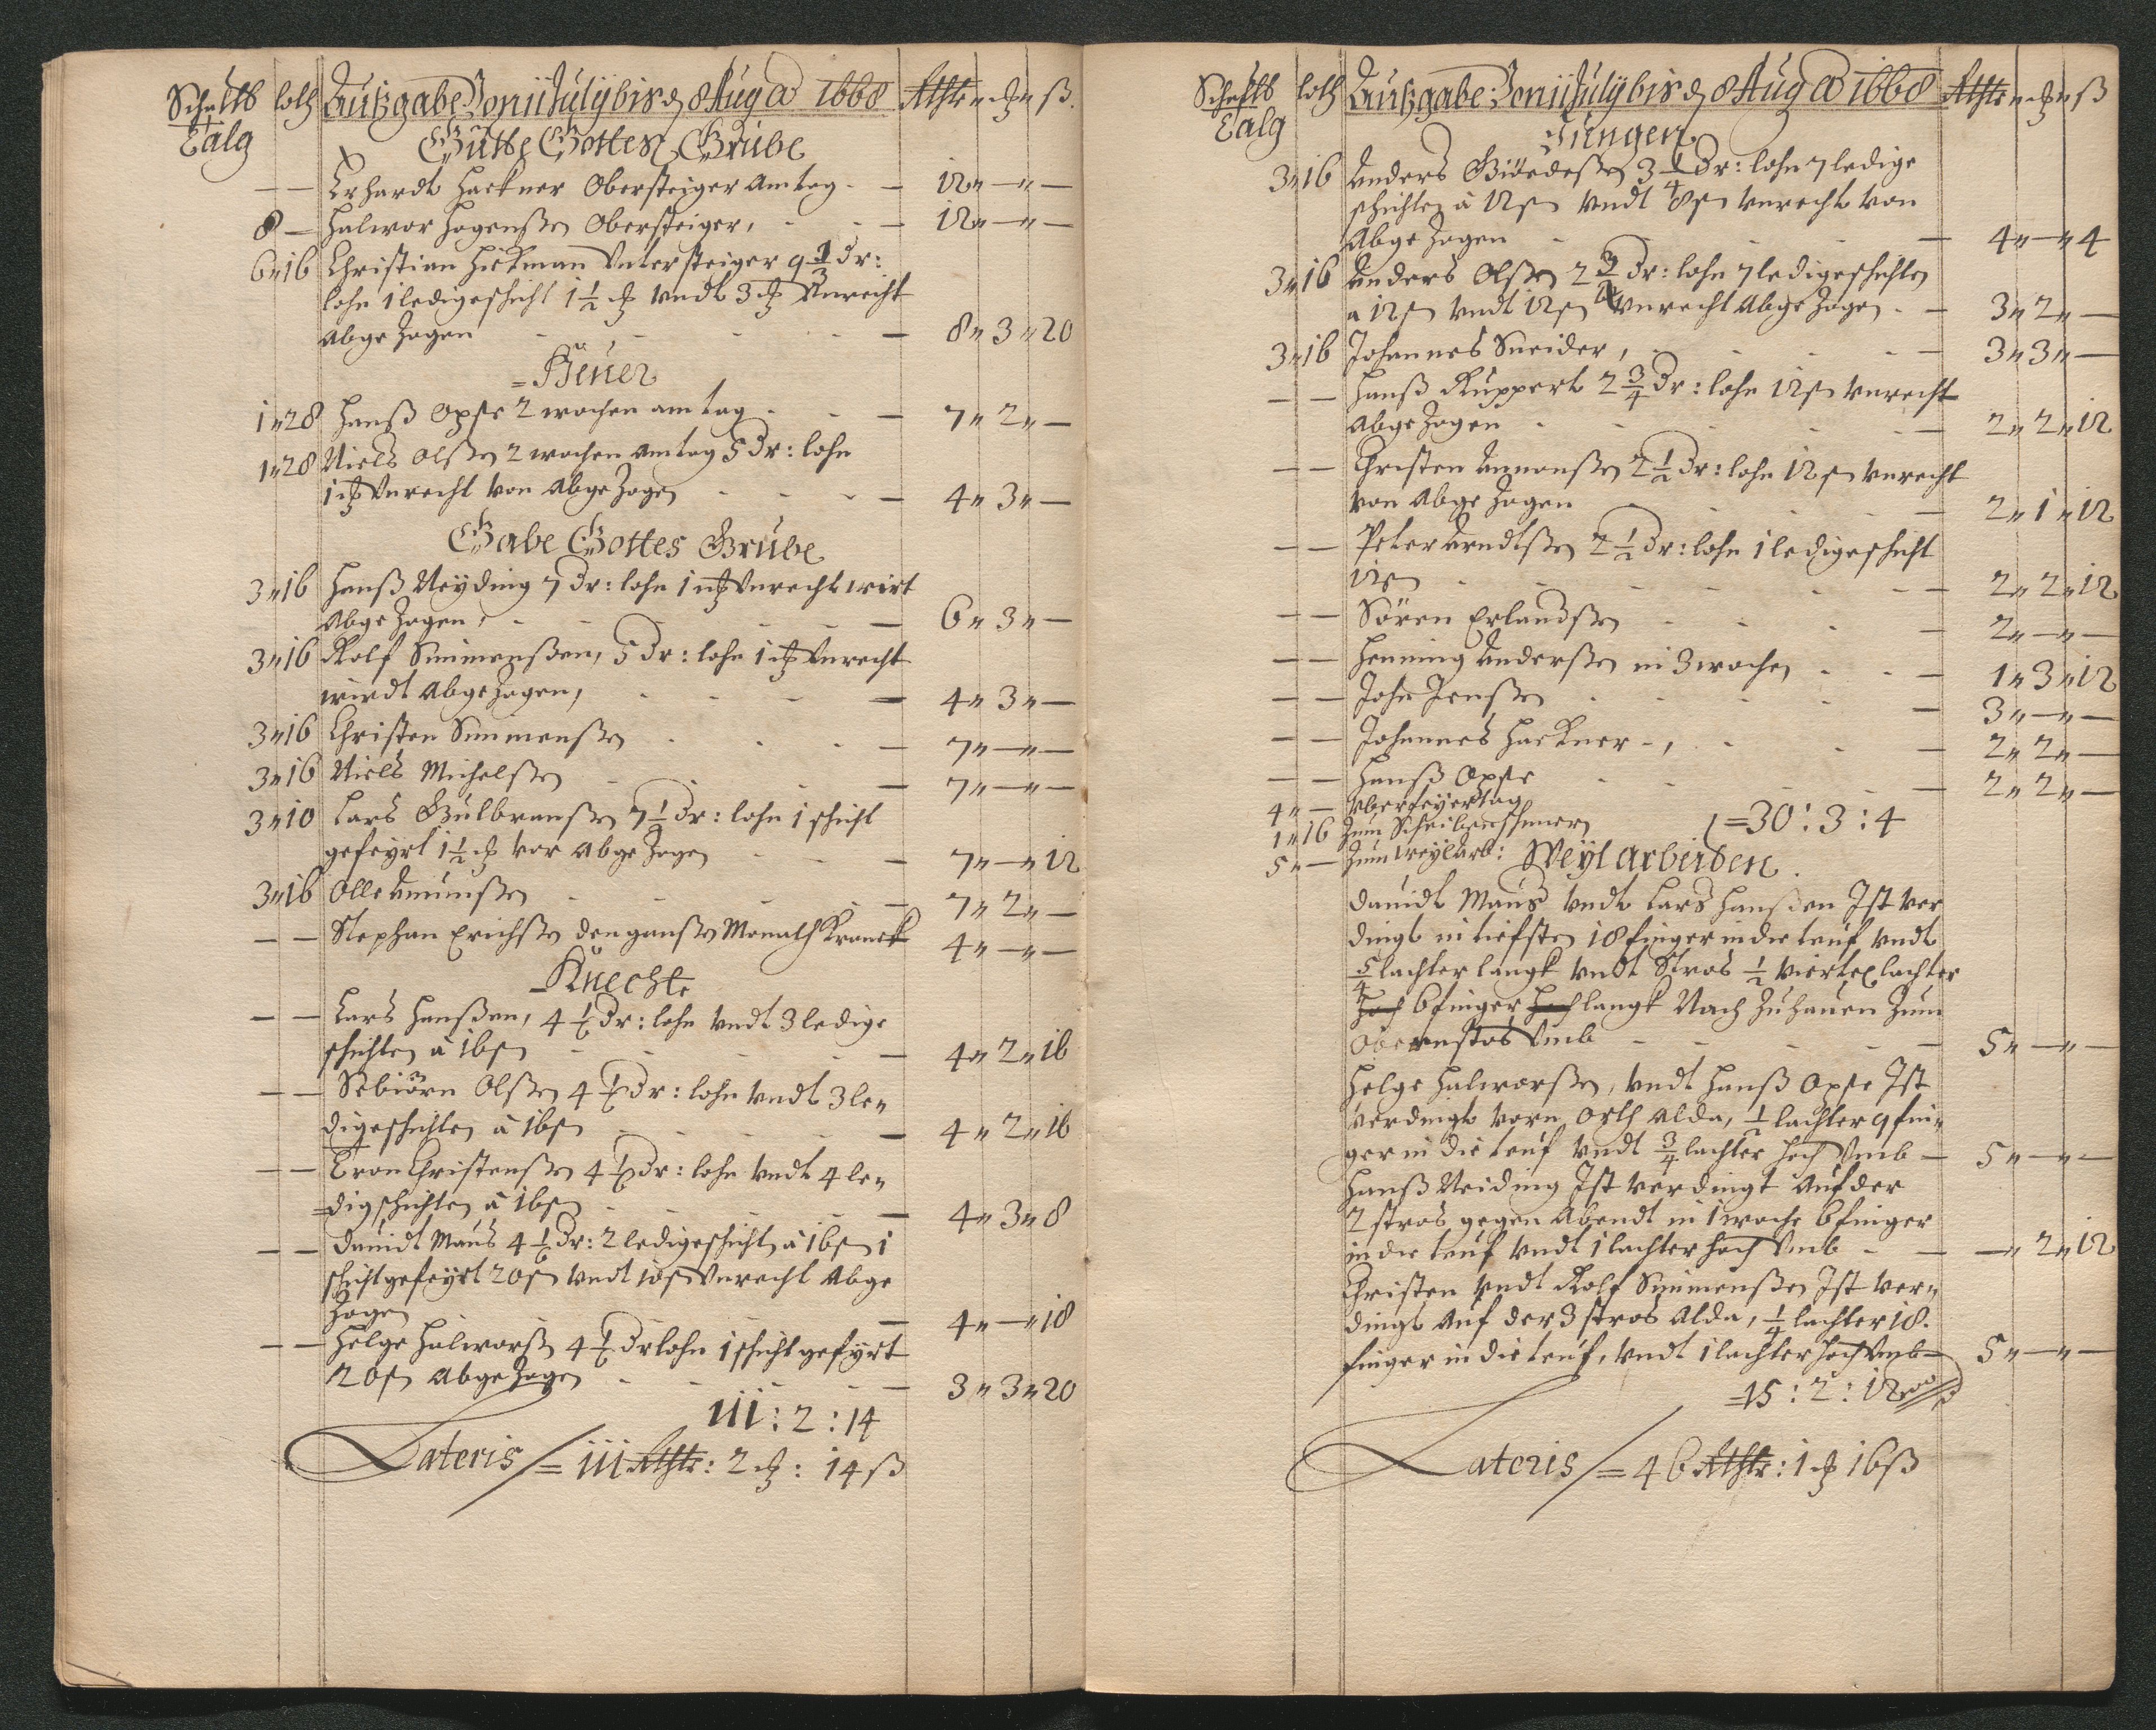 Schaltb loth Außgabe Von ii July bis d 8 Aug Ao 1668 Rthlr " ch " ß.
Talg
Gütte Gottes Grube
— — Erhardt Hackner Obersteiger am tag - — 12 " — " —
8 — Halwor Hogenßen Obersteiger, - - — 12 " — " —
6 " 16 Christian Hickman Untersteiger 9 1/3 dr:
lohn 1 ledigeschicht 1 1/2 ch undt 3 ch Unrecht
abgezogen - - - - — 8 " 3 " 20
Heuer
1 " 28 Hanß Opse 2 wochen am tag - - — 7 " 2 " —
1 " 28 Niels Olßen 2 wochen am tag 5 dr: lohn
1 ch Unrecht von abgezogen - - - — 4 " 3 " —
Gabe Gottes Grube
3 " 16 Hanß Neyding 7 dr: lohn 1 ch Unrecht wirt
abgezogen, - - - - — 6 " 3 " —
3 " 16 Rolf Simmenßen, 5 dr: lohn 1 ch Unrecht
wirdt abgezogen, - - - — 4 " 3 " —
3 " 16 Christen Simmenßen - - - — 7 " — " —
3 " 16 Niels Michelßen - - - — 7 " — " —
3 " 10 Lars Gulbranßen 7 1/2 dr: lohn 1 schicht
gefeyrt 1 1/2 ch vor abgezogen - - — 7 " — " 12
3 " 16 Olle Amunßen - - - — 7 " 2 " —
— — Stephan Erichßen den ganßen Monath Kranck 4 " — " —
Knechte
— — Lars Hanßen, 4 1/6 dr: lohn undt 3 ledige
schichten à 16 ß - - - — 4 " 2 " 16
— — Sebiörn Olßen 4 1/6 dr: lohn undt 3 le"
digeschichten à 16 ß - - - — 4 " 2 " 16
— — Tron Christenßen 4 1/6 dr: lohn undt 4 le"
digschichten à 16 ß - - - — 4 " 3 " 8
— — Dauidt Maus 4 1/6 dr: 2 ledigeschicht à 16 ß 1
schicht gefeyrt 20 ß undt 10 ß Unrecht abge
zogen - - - - — 4 " — " 18
— — Helge Halworß 4 1/6 dr lohn 1 schicht gefyrt
20 ß abgezogen - - - — 3 " 3 " 20
111 : 2 : 14
Lateris = 111 Rthlr: 2 ch: 14 ß
Schaltb loth Außgabe: Von ii July bis d 8 Aug Ao 1668 Rthlr " ch " ß
Talg
Jungen
3 " 16 Anders Giöedeßen 3 1/4 dr: lohn 7 ledige
schichten à 12 ß undt 8 ß unrecht von
abgezogen - - - — 4 " — " 4
3 " 16 Anders Olßen 2 3/4 dr: lohn 7 ledigeschichten
a 12 ß undt 12 ß unrecht abgezogen - — 3 " 2 " —
3 " 16 Johannes Sneider, - - - — 3 " 3 " —
— — Hanß Ruppert 2 3/4 dr: lohn 12 ß unrecht
abgezogen - - - - — 2 " 2 " 12
— — Christen Amonßen 2 1/2 dr: lohn 12 ß unrecht
von abgezogen - - - — 2 " 1 " 12
— — Peter Arndtßen 2 1/2 dr: lohn 1 ledigeschicht
12 ß - - - - — 2 " 2 " 12
— — Sören Erlandßen - - - — 2 " — " —
— — Henning Anderßen in 3 wochen - - — 1 " 3 " 12
— — John Jenßen - - - — 3 " — " —
— — Johannes Hackner -, - - — 2 " 2 " —
— — Hanß Opse - - - — 2 " 2 " —
4 " — Uber feyertag
1 " 16 Zum Scheibenschmer = 30 : 3 : 4
5 " — Zum weylarb: Weyl arbeiden
Dauidt Maus undt Lars Hanßen Ist ver
dingt in tiefsten 18 finger in die teuf undt
5/4 lachter langk undt Stros 1/2 viertel lachter
hoch 6 finger hoch langk Nach Zuhauen Zum
Obernstos Umb - - - — 5 " — " —
Helge Halworßen, undt Hanß Opse Ist
verdingt vorn Orth alda, 1/2 lachter 9 fin"
ger in die teuf undt 3/4 lachter hoch Umb — 5 " — " —
Hanß Neiding Ist verdingt auf der
2 stros gegen Abendt in 1 woche 6 finger
in die teuf undt 1 lachter hoch Umb - — — " 2 " 12
Christen undt Rolf Simmenßen Ist ver"
dingt auf der 3 stros alda, 1/4 lachter 18.
finger in die teuf, undt 1 lachter hoch Umb — 5 " — " —
= 15 : 2 : 12
Lateris = 46 Rthlr: 1 ch 16 ß